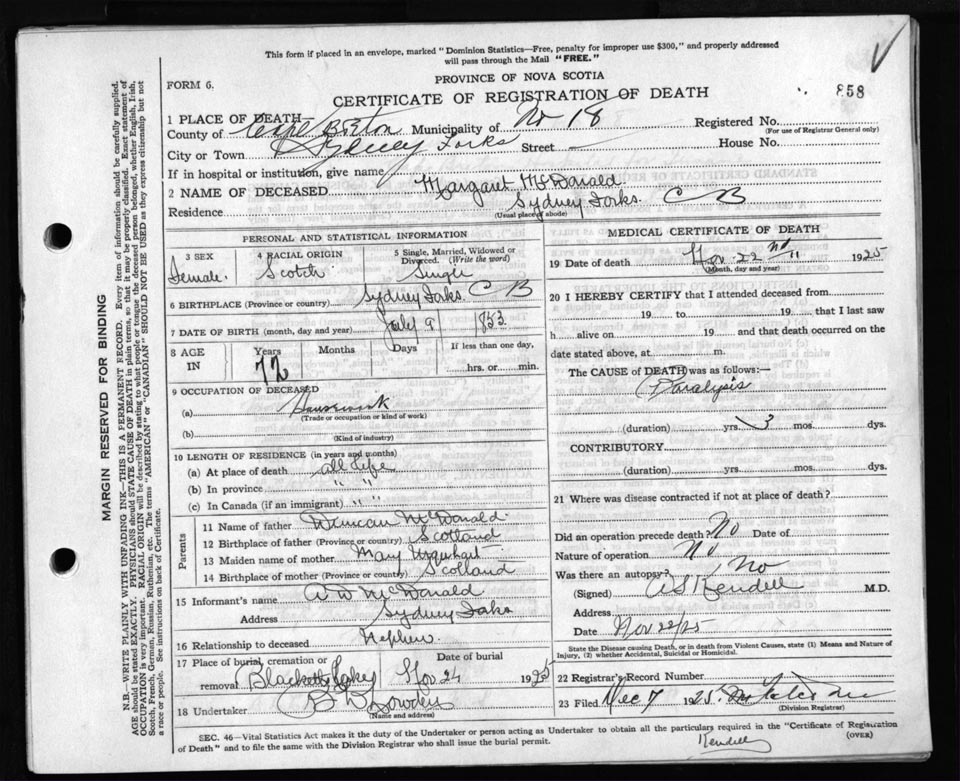 This form if placed in an envelope, marked "Dominion Statistics—Free, penalty for improper use $300," and properly addressed
will pass through the Mail "FREE."
PROVINCE OF NOVA SCOTIA
FORM 6.
CERTIFICATE OF REGISTRATION OF DEATH
858
1 PLACE OF DEATH
County of Cape Breton Municipality of No 18
Registered No.
(For use of Registrar General only)
City or Town Sydney Forks Street
House No.
If in hospital or institution, give name
2 NAME OF DECEASED Margaret McDonald
Residence Sydney Forks. C B
(Usual place of abode)
PERSONAL AND STATISTICAL INFORMATION
3 SEX
Female.
4 RACIAL ORIGIN
Scotch
5 Single, Married, Widowed or
Divorced. (Write the word)
Single
6 BIRTHPLACE (Province or country) Sydney Forks. C B
7 DATE OF BIRTH (month, day and year) July 9 1853
8 AGE
IN
Years
72
Months
Days
If less than one day,
hrs. or min.
9 OCCUPATION OF DECEASED
(a) Housework
(Trade or occupation or kind of work)
(b)
(Kind of industry)
10 LENGTH OF RESIDENCE (in years and months)
(a) At place of death all life
(b) In province " "
(c) In Canada (if an immigrant) " "
Parents
11 Name of father Duncan McDonald
12 Birthplace of father (Province or country) Scotland
13 Maiden name of mother Mary Urquhart
14 Birthplace of mother (Province or country) Scotland
15 Informant's name McDonald
Address Sydney Forks
16 Relationship to deceased Nephew.
17 Place of burial, cremation or
removal Blacketts Lake
Date of burial
Nov 24 1925
18 Undertaker
(Name and address)
MEDICAL CERTIFICATE OF DEATH
19 Date of death Nov 22 1925
(Month, day and year)
20 I HEREBY CERTIFY that I attended deceased from
19 to 19 that I last saw
h alive on 19 and that death occurred on the
date stated above, at m.
The CAUSE OF DEATH was as follows:—
Paralysis
(duration) yrs. 3 mos. dys.
CONTRIBUTORY
(duration) yrs. mos. dys.
21 Where was disease contracted if not at place of death?
Did an operation precede death? No Date of
Nature of operation No
Was there an autopsy? No
(Signed) A S Kendall M.D.
Address
Date Nov 22/25
State the Disease causing Death, or in death from Violent Causes, state (1) Means and Nature of
Injury, (2) whether Accidental, Suicidal or Homicidal.
22 Registrar's Record Number
23 Filed Dec 7 1925
(Division Registrar)
SEC. 46—Vital Statistics Act makes it the duty of the Undertaker or person acting as Undertaker to obtain all the particulars required in the "Certificate of Registration
of Death" and to file the same with the Division Registrar who shall issue the burial permit.
(OVER)
Kendall
MARGIN RESERVED FOR BINDING
N.B.—WRITE PLAINLY WITH UNFADING INK—THIS IS A PERMANENT RECORD. Every item of information should be carefully supplied.
AGE should be stated EXACTLY. PHYSICIANS should STATE CAUSE OF DEATH in plain terms, so that it may be properly classified. Exact statement of
OCCUPATION is very important. RACIAL ORIGIN will be described by stating to what people or tongue the deceased person belonged, whether English, Irish,
Scotch, French, German, Russian, Ruthenian, etc. The terms "AMERICAN" or "CANADIAN" SHOULD NOT BE USED as they express citizenship but not
a race or people. See instructions on back of Certificate.